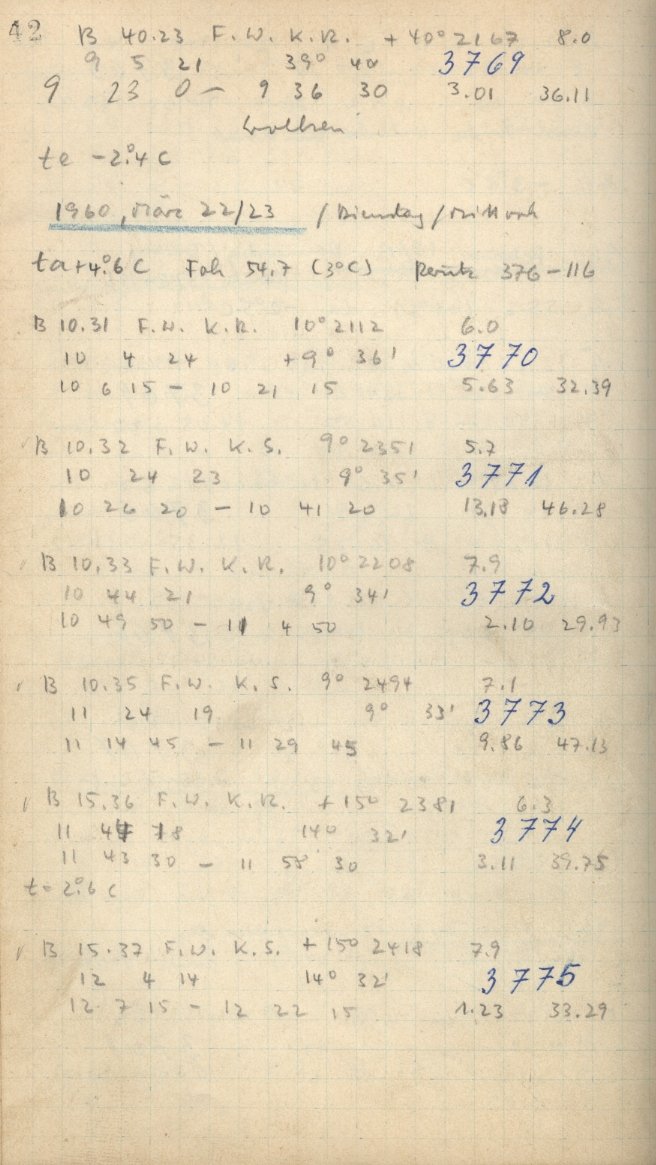 42 B 40.23 F. W. K. R. + 40° 2167 8.0
9 5 21 39° 40 3769
9 23 0 — 9 36 30 3.01 36.11
Wolken
te -2°.4 C
1960, März 22/23 / Dienstag / Mittwoch
ta +4°.6 C Fok 54,7 (3°C) 376 - 116
B 10.31 F. W. K. R. 10° 2112 6.0
10 4 24 +9° 36' 3770
10 6 15 — 10 21 15 5.63 32.39
B 10.32 F. W. K. S. 9° 2351 5.7
10 24 23 9° 35' 3771
10 26 20 — 10 41 20 13.18 46.28
B 10.33 F. W. K. R. 10° 2208 7.9
10 44 21 9° 34' 3772
10 49 50 — 11 4 50 2.10 29.93
B 10.35 F. W. K. S. 9° 2494 7.1
11 24 19 9° 33' 3773
11 14 45 — 11 29 45 9.86 47.13
B 15.36 F. W. K. R. + 15° 2381 6.3
11 44 18 14° 32' 3774
11 43 30 — 11 58 30 3.11 39.75
t = 2°.6 C
B 15.37 F. W. K. S. + 15° 2418 7.9
12 4 14 14° 32' 3775
12 7 15 — 12 22 15 1.23 33.29